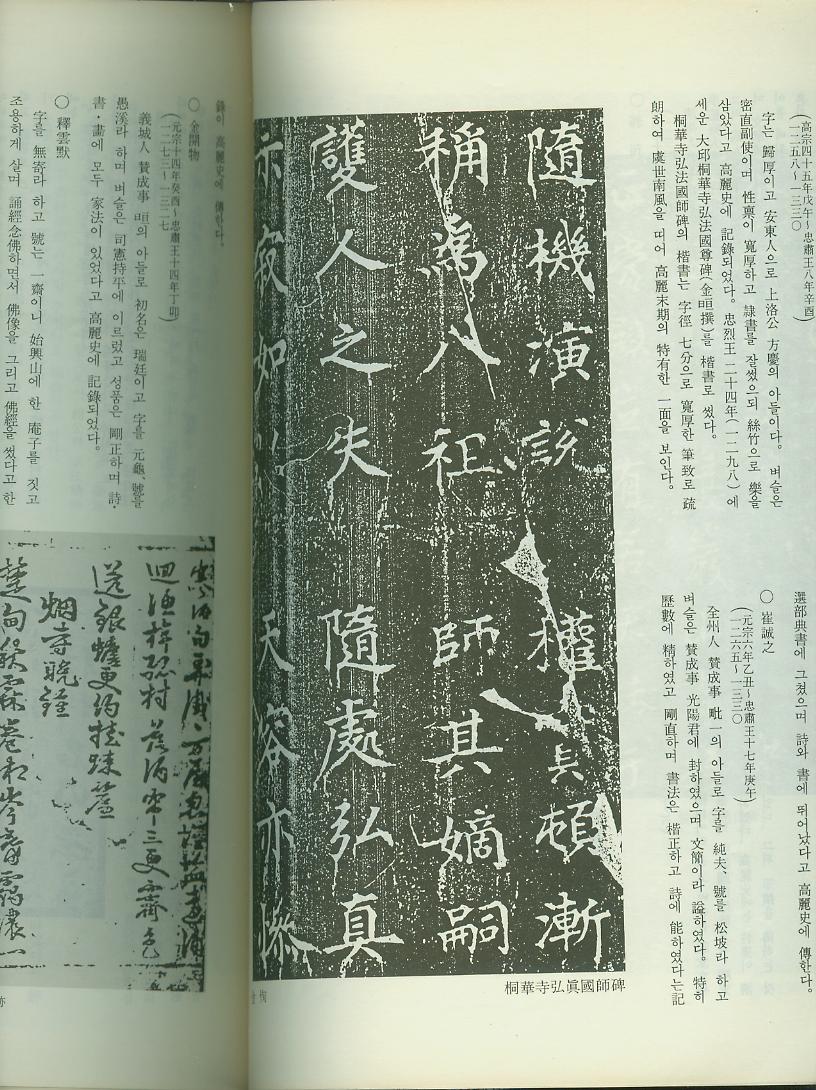 (高宗四十五年戊午~忠肅王八年辛酉)
一二五八~一三三〇
字는 歸厚이고 安東人으로 上洛公 方慶의 아들이다. 벼슬은
密直副使이며 性禀이 寬厚하고 隷書를 잘썼으되 絲竹으로 樂을
삼았다고 高麗史에 記錄되었다. 忠烈王 二十四年(一二九八)에
세운 大邱桐華寺弘法國尊碑(金㫜撰)를 楷書로 썼다.
桐華寺弘法國師碑의 楷書는 字徑 七分으로 寬厚한 筆致로 疏
朗하여 虞世南風을 띠어 高麗末期의 特有한 一面을 보인다.
選部典書에 그쳤으며 詩와 書에 뛰어났다고 高麗史에 傳한다.
○ 崔誠之
(元宗六年乙丑~忠肅王十七年庚午)
一二六五~一三三〇
全州人 贊成事 毗一의 아들로 字를 純夫、號를 松坡라 하고
벼슬은 贊成事 光陽君에 封하였으며 文簡이라 諡하였다. 特히
歷數에 精하였고 剛直하며 書法은 楷正하고 詩에 能하였다는 記
隨機演說 權 頓漸
稱爲八祖 師其嫡嗣
護人之失 隨處弘真
示寂如 天容亦慘
桐華寺弘眞國師碑
錄이 高麗史에 傳한다.
○ 金開物
(元宗十四年癸酉~忠肅王十四年丁卯)
一二七三~一三二七
義城人 贊成事 㫜의 아들로 初名은 瑞廷이고 字를 元龜、號를
愚溪라 하며 벼슬은 司憲持平에 이르렀고 성품은 剛正하며 詩·
書·畵에 모두 家法이 있었다고 高麗史에 記錄되었다.
○ 釋雲默
字를 無寄라 하고 號는 一齋이니 始興山에 한 庵子를 짓고
조용하게 살며 誦經念佛하면서 佛像을 그리고 佛經을 썼다고 한
送銀蟾更
烟寺晩鐘